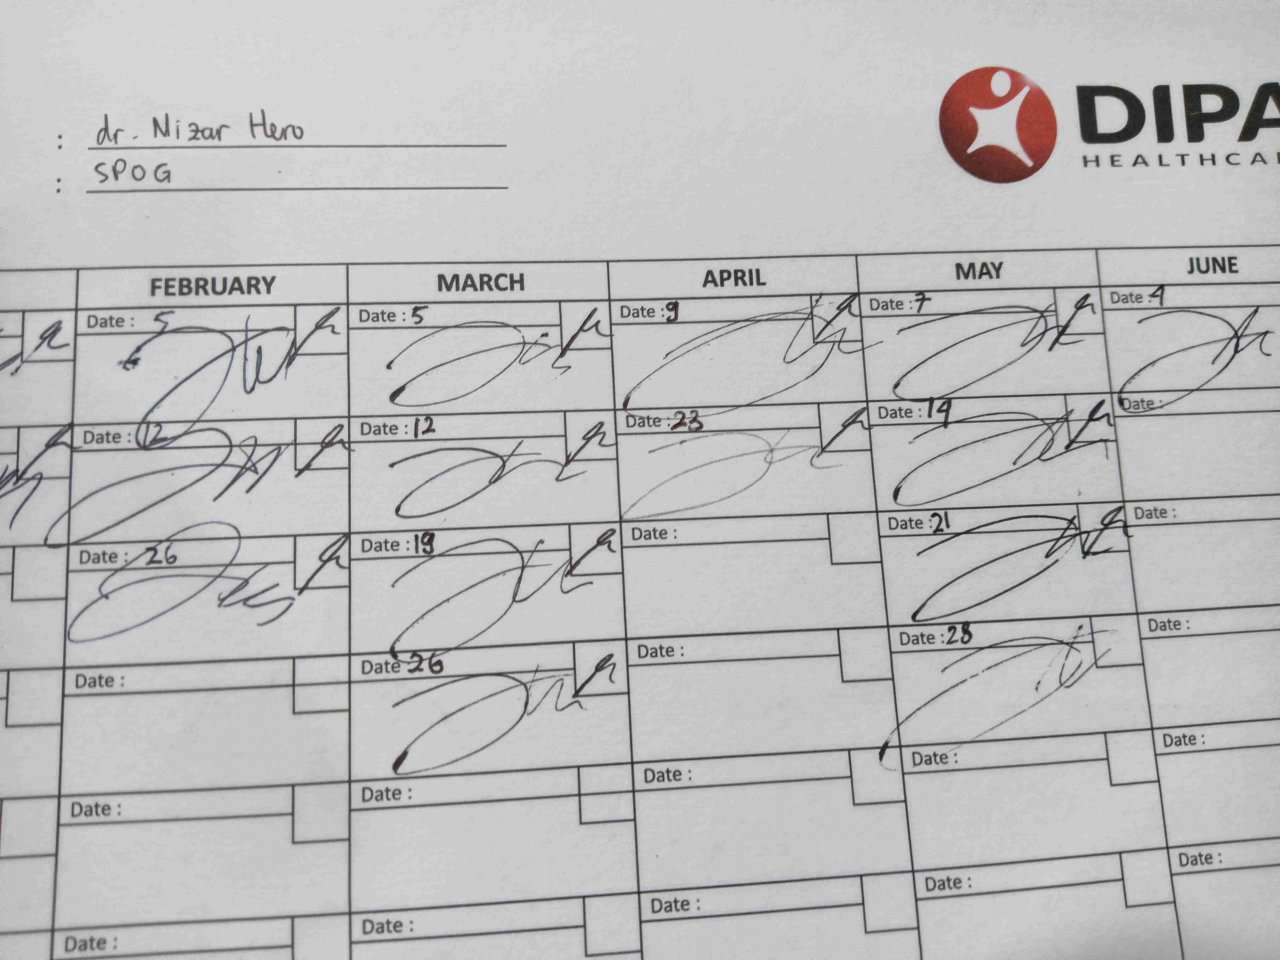 : dr. Nizar Hero
: SPOG
DIPA
HEALTHCA
FEBRUARY MARCH APRIL MAY JUNE
Date : 5 Date : 5 Date : 9 Date : 7 Date : 4
Date : 12 Date : 12 Date : 23 Date : 14 Date :
Date : 26 Date : 19 Date : Date : 21 Date :
Date : Date 26 Date : Date : 28 Date :
Date : Date : Date : Date : Date :
Date : Date : Date : Date : Date :